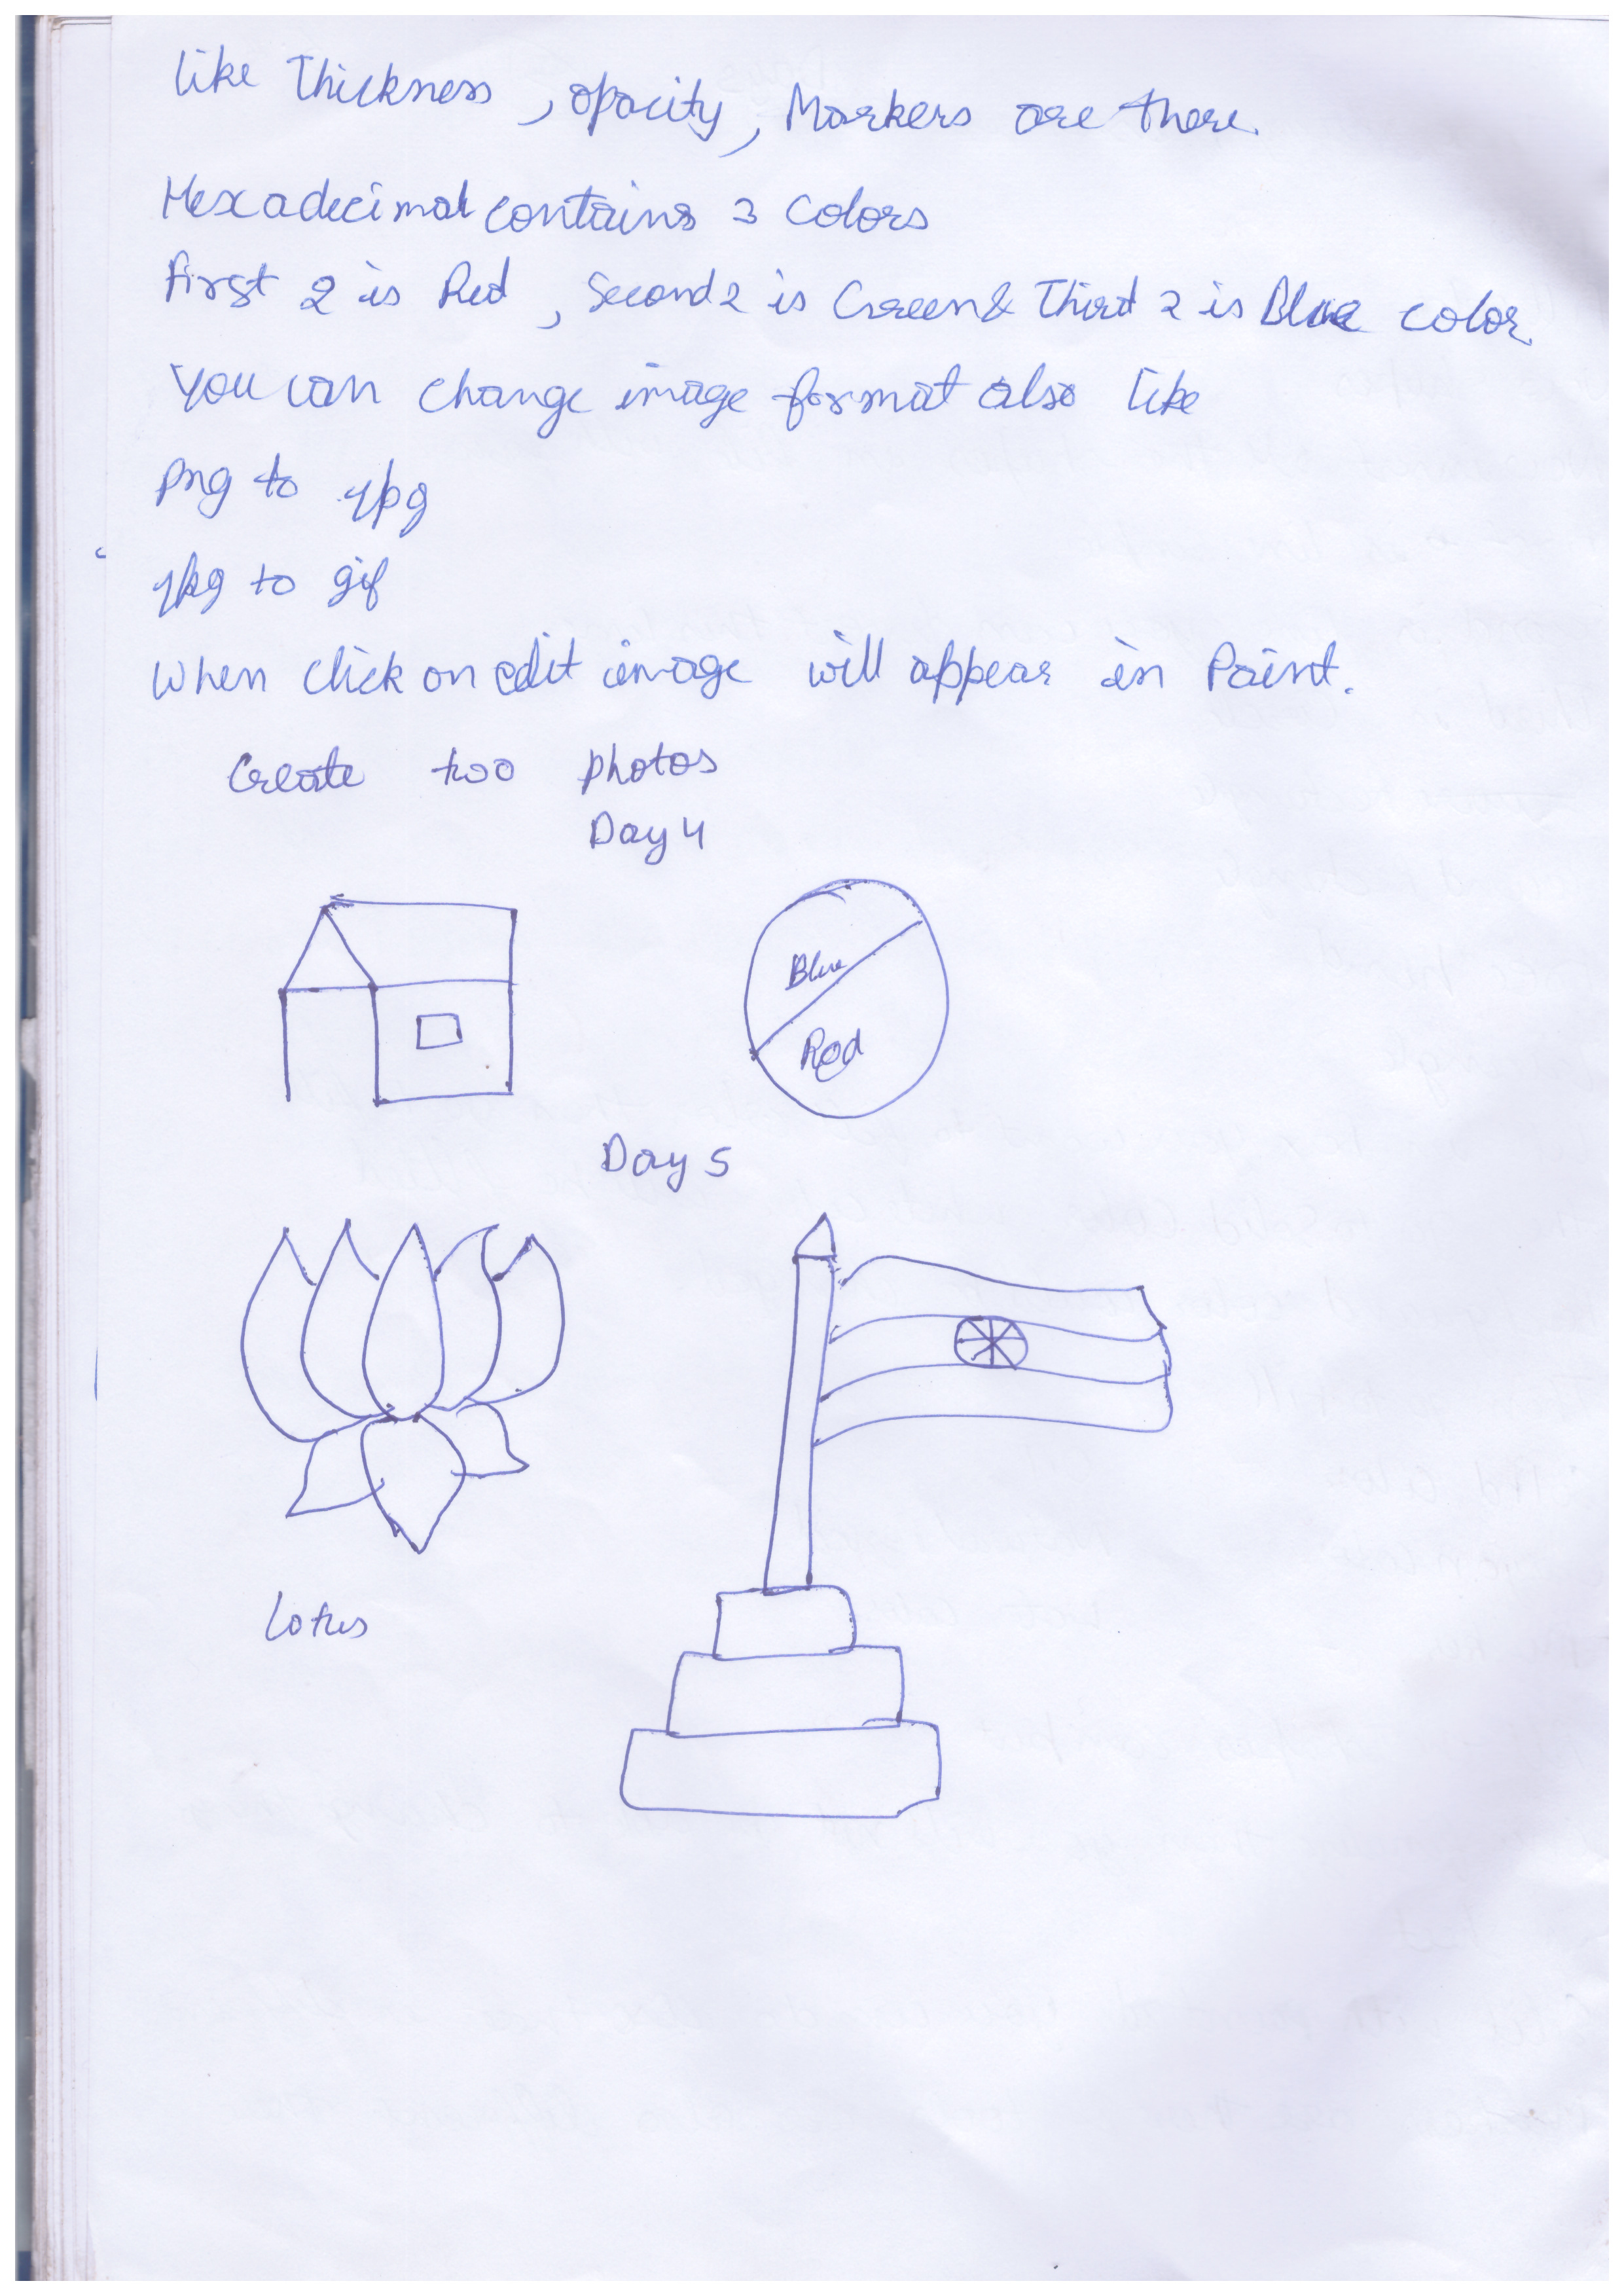 like Thickness, opacity, Markers are there.
Hexadecimal contains 3 colors
First 2 is Red, Second 2 is Green & Third 2 is Blue color
You can change image format also like
png to jpg
jpg to gif
When click on edit image will appear in Paint.
Create two photos
Day 4
Blue
Red
Day 5
Lotus